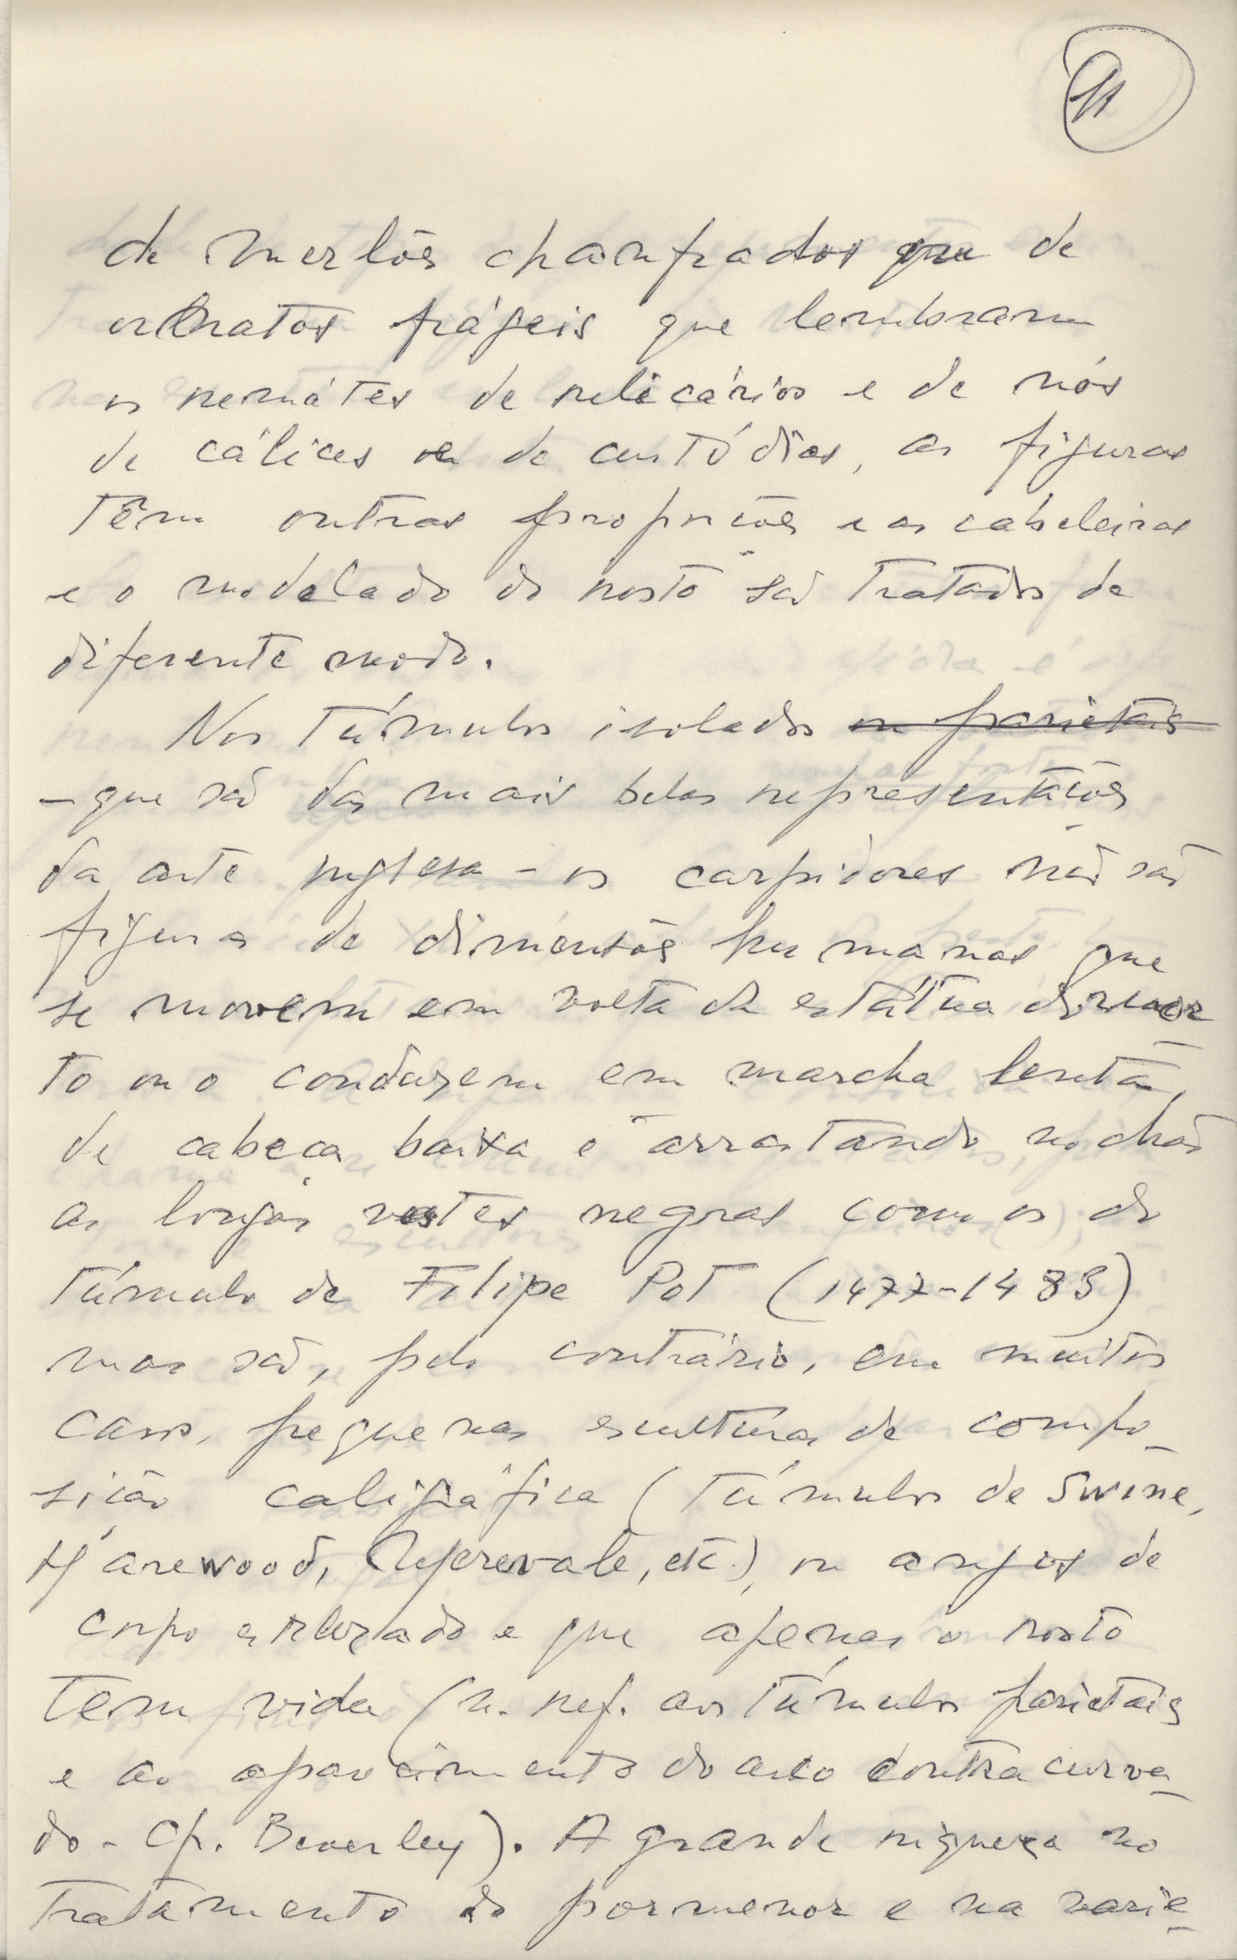 11
de merlões chanfrados que de
ornatos frágeis que lembram
os remátes de relicários e de nós
de cálices ou de custódias, as figuras
têm outras proporções e as cabeleiras
e o modelado do rosto são tratados de
diferente modo.
Nos túmulos isolados ou parietais
- que são das mais belas representações
da arte inglesa - os carpidores não são
figuras de dimensões humanas que
se movem em volta da estátua do mor
to ou o conduzem em marcha lenta,
de cabeça baixa e arrastando no chão
as longas vestes negras como os do
túmulo de Filipe Pot (1477-1483)
mas são, pelo contrário, em muitos
casos, pequenas esculturas de compo-
sição caligráfica (túmulos de Swine,
Harewood, etc.), ou anjos de
corpo e que apenas o rosto
tem vida (n. ref. aos túmulos parietais
e ao aparecimento do arco contracurva-
do - Cf. Beverley). A grande riqueza no
tratamento do pormenor e na varie-